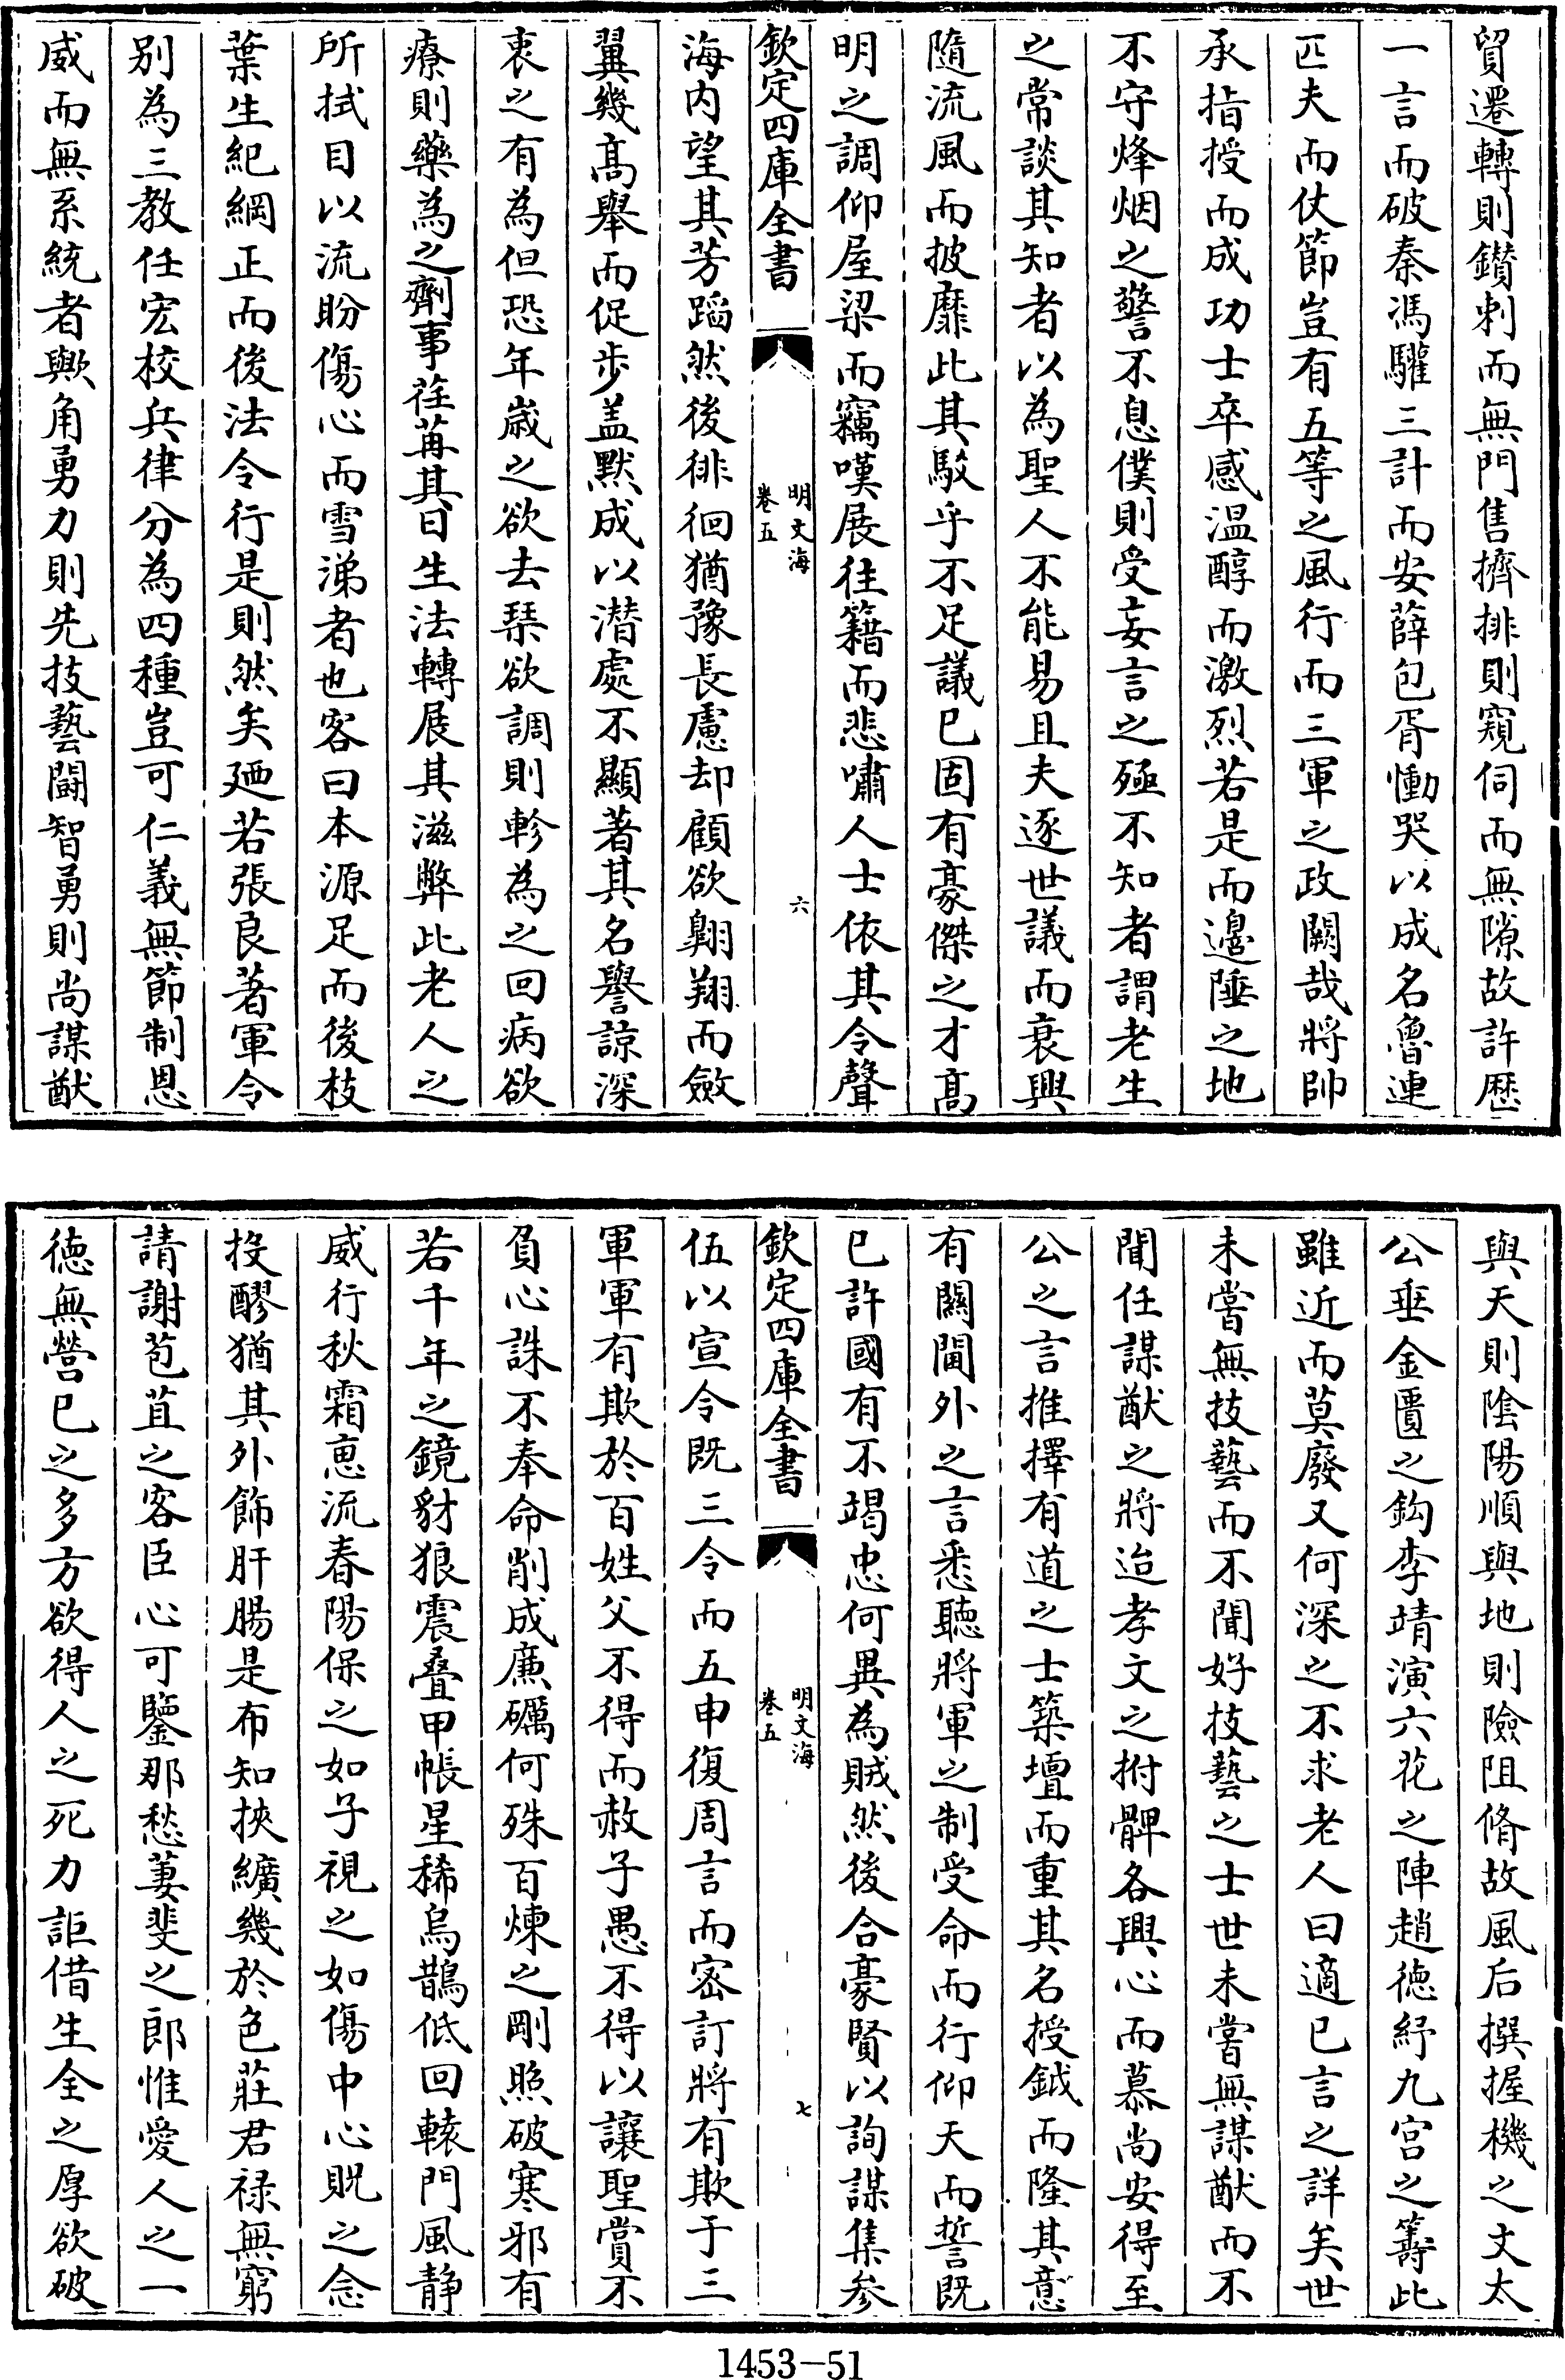 貿遷轉則鑚刺而無門售擠排則窺伺而無隙故許歴
一言而破秦馮驩三計而安薛包胥慟哭以成名魯連
匹夫而仗節豈有五等之風行而三軍之政闕哉將帥
承指授而成功士卒感温醇而激烈若是而邊陲之地
不守烽烟之警不息僕則受妄言之殛不知者謂老生
之常談其知者以為聖人不能易且夫逐世議而衰興
隨流風而披靡此其駮乎不足議已固有豪傑之才高
明之調仰屋梁而竊嘆展往籍而悲嘯人士依其令聲
欽定四庫全書
明文海
卷五
六
海内望其芳蹈然後徘徊猶豫長慮却顧欲翺翔而斂
翼幾高舉而促步盖默成以潜處不顯著其名譽諒深
衷之有為但恐年嵗之欲去琹欲調則軫為之回病欲
療則藥為之劑事荏苒其日生法轉展其滋弊此老人之
所拭目以流盼傷心而雪涕者也客曰本源足而後枝
葉生紀綱正而後法令行是則然矣廼若張良著軍令
别為三教任宏校兵律分為四種豈可仁義無節制恩
威而無系統者歟角勇力則先技藝鬭智勇則尚謀猷
與天則陰陽順與地則險阻脩故風后撰握機之文太
公垂金匱之鈎李靖演六花之陣趙德紓九宫之籌此
雖近而莫廢又何深之不求老人曰適已言之詳矣世
未嘗無技藝而不聞好技藝之士世未嘗無謀猷而不
聞任謀猷之將迨孝文之拊髀各興心而慕尚安得至
公之言推擇有道之士築壇而重其名授鉞而隆其意
有闗閫外之言悉聽將軍之制受命而行仰天而誓既
已許國有不竭忠何異為賊然後合豪賢以詢謀集參
欽定四庫全書
明文海
卷五
七
伍以宣令既三令而五申復周言而宻訂將有欺于三
軍軍有欺於百姓父不得而赦子愚不得以讓聖賞不
負心誅不奉命削成亷礪何殊百煉之剛照破寒邪有
若千年之鏡豺狼震叠甲帳星稀烏鵲低回轅門風静
威行秋霜恵流春陽保之如子視之如傷中心貺之念
投醪猶其外飾肝腸是布知挾纊幾於色莊君禄無窮
請謝苞苴之客臣心可鑒那愁萋斐之郎惟愛人之一
德無營已之多方欲得人之死力詎借生全之厚欲破
1453-51